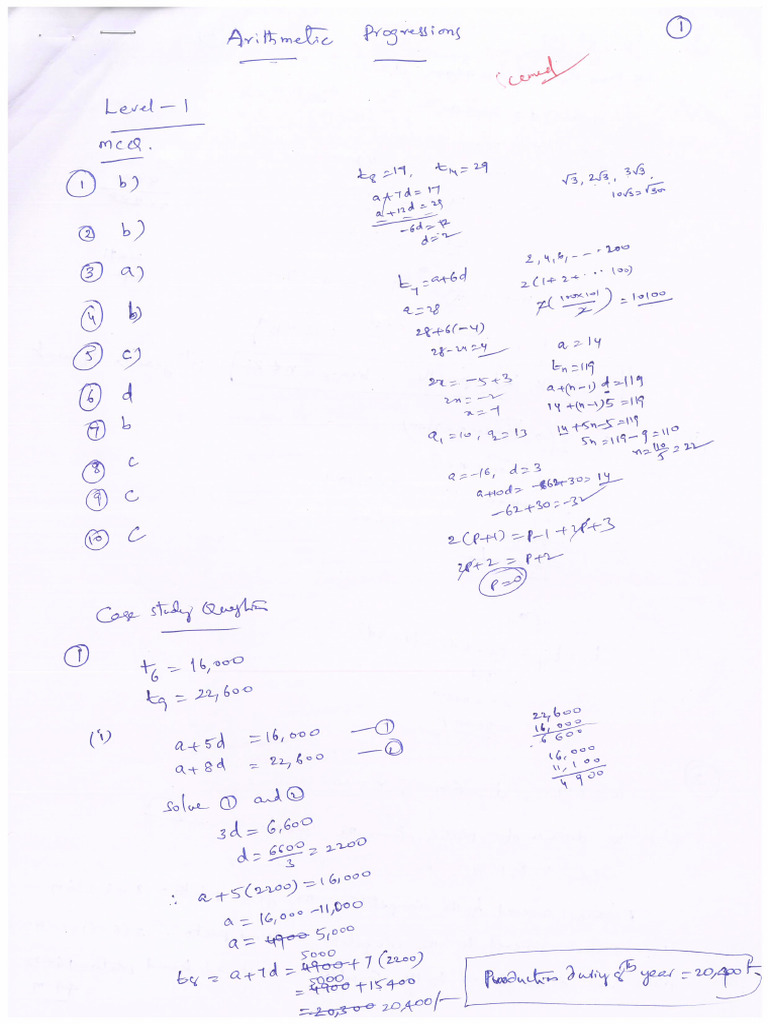 Arithmetic Progressions
①
Level-1
MCQ.
① b)
② b)
③ a)
④ b)
⑤ c)
⑥ d
⑦ b
⑧ c
⑨ c
⑩ C
t8 = 19, t14 = 29
a+7d = 17
a+12d = 29
-6d = 12
d = 2
√3, 2√3, 3√3.
10√3 = √300
t7 = a+6d
a = 28
28+6(-4)
28-24 = 4
2, 4, 6, --- 200
2(1+2+ ... 100)
2(100×101/2) = 10100
2x = -5+3
2x = -2
x = -1
a1 = 10, a2 = 13
a = 14
tn = 119
a+(n-1)d = 119
14+(n-1)5 = 119
14+5n-5 = 119
5n = 119-9 = 110
n = 110/5 = 22
a = -16, d = 3
-62+30 = -32
2(P+1) = P-1 + 2P+3
2P+2 = P+2
P=0
Case study Question
①
t6 = 16,000
t9 = 22,600
(i)
a+5d = 16,000 —①
a+8d = 22,600 —②
22,600
16,000
6600
16,000
11,100
4900
solve ① and ②
3d = 6,600
d = 6600/3 = 2200
∴ a+5(2200) = 16,000
a = 16,000 - 11,000
a = 4900 5,000
t8 = a+7d = 4900 5000 + 7(2200)
= 4900 5000 + 15400
= 20,300 20,400/-
Production during 8th year = 20,400